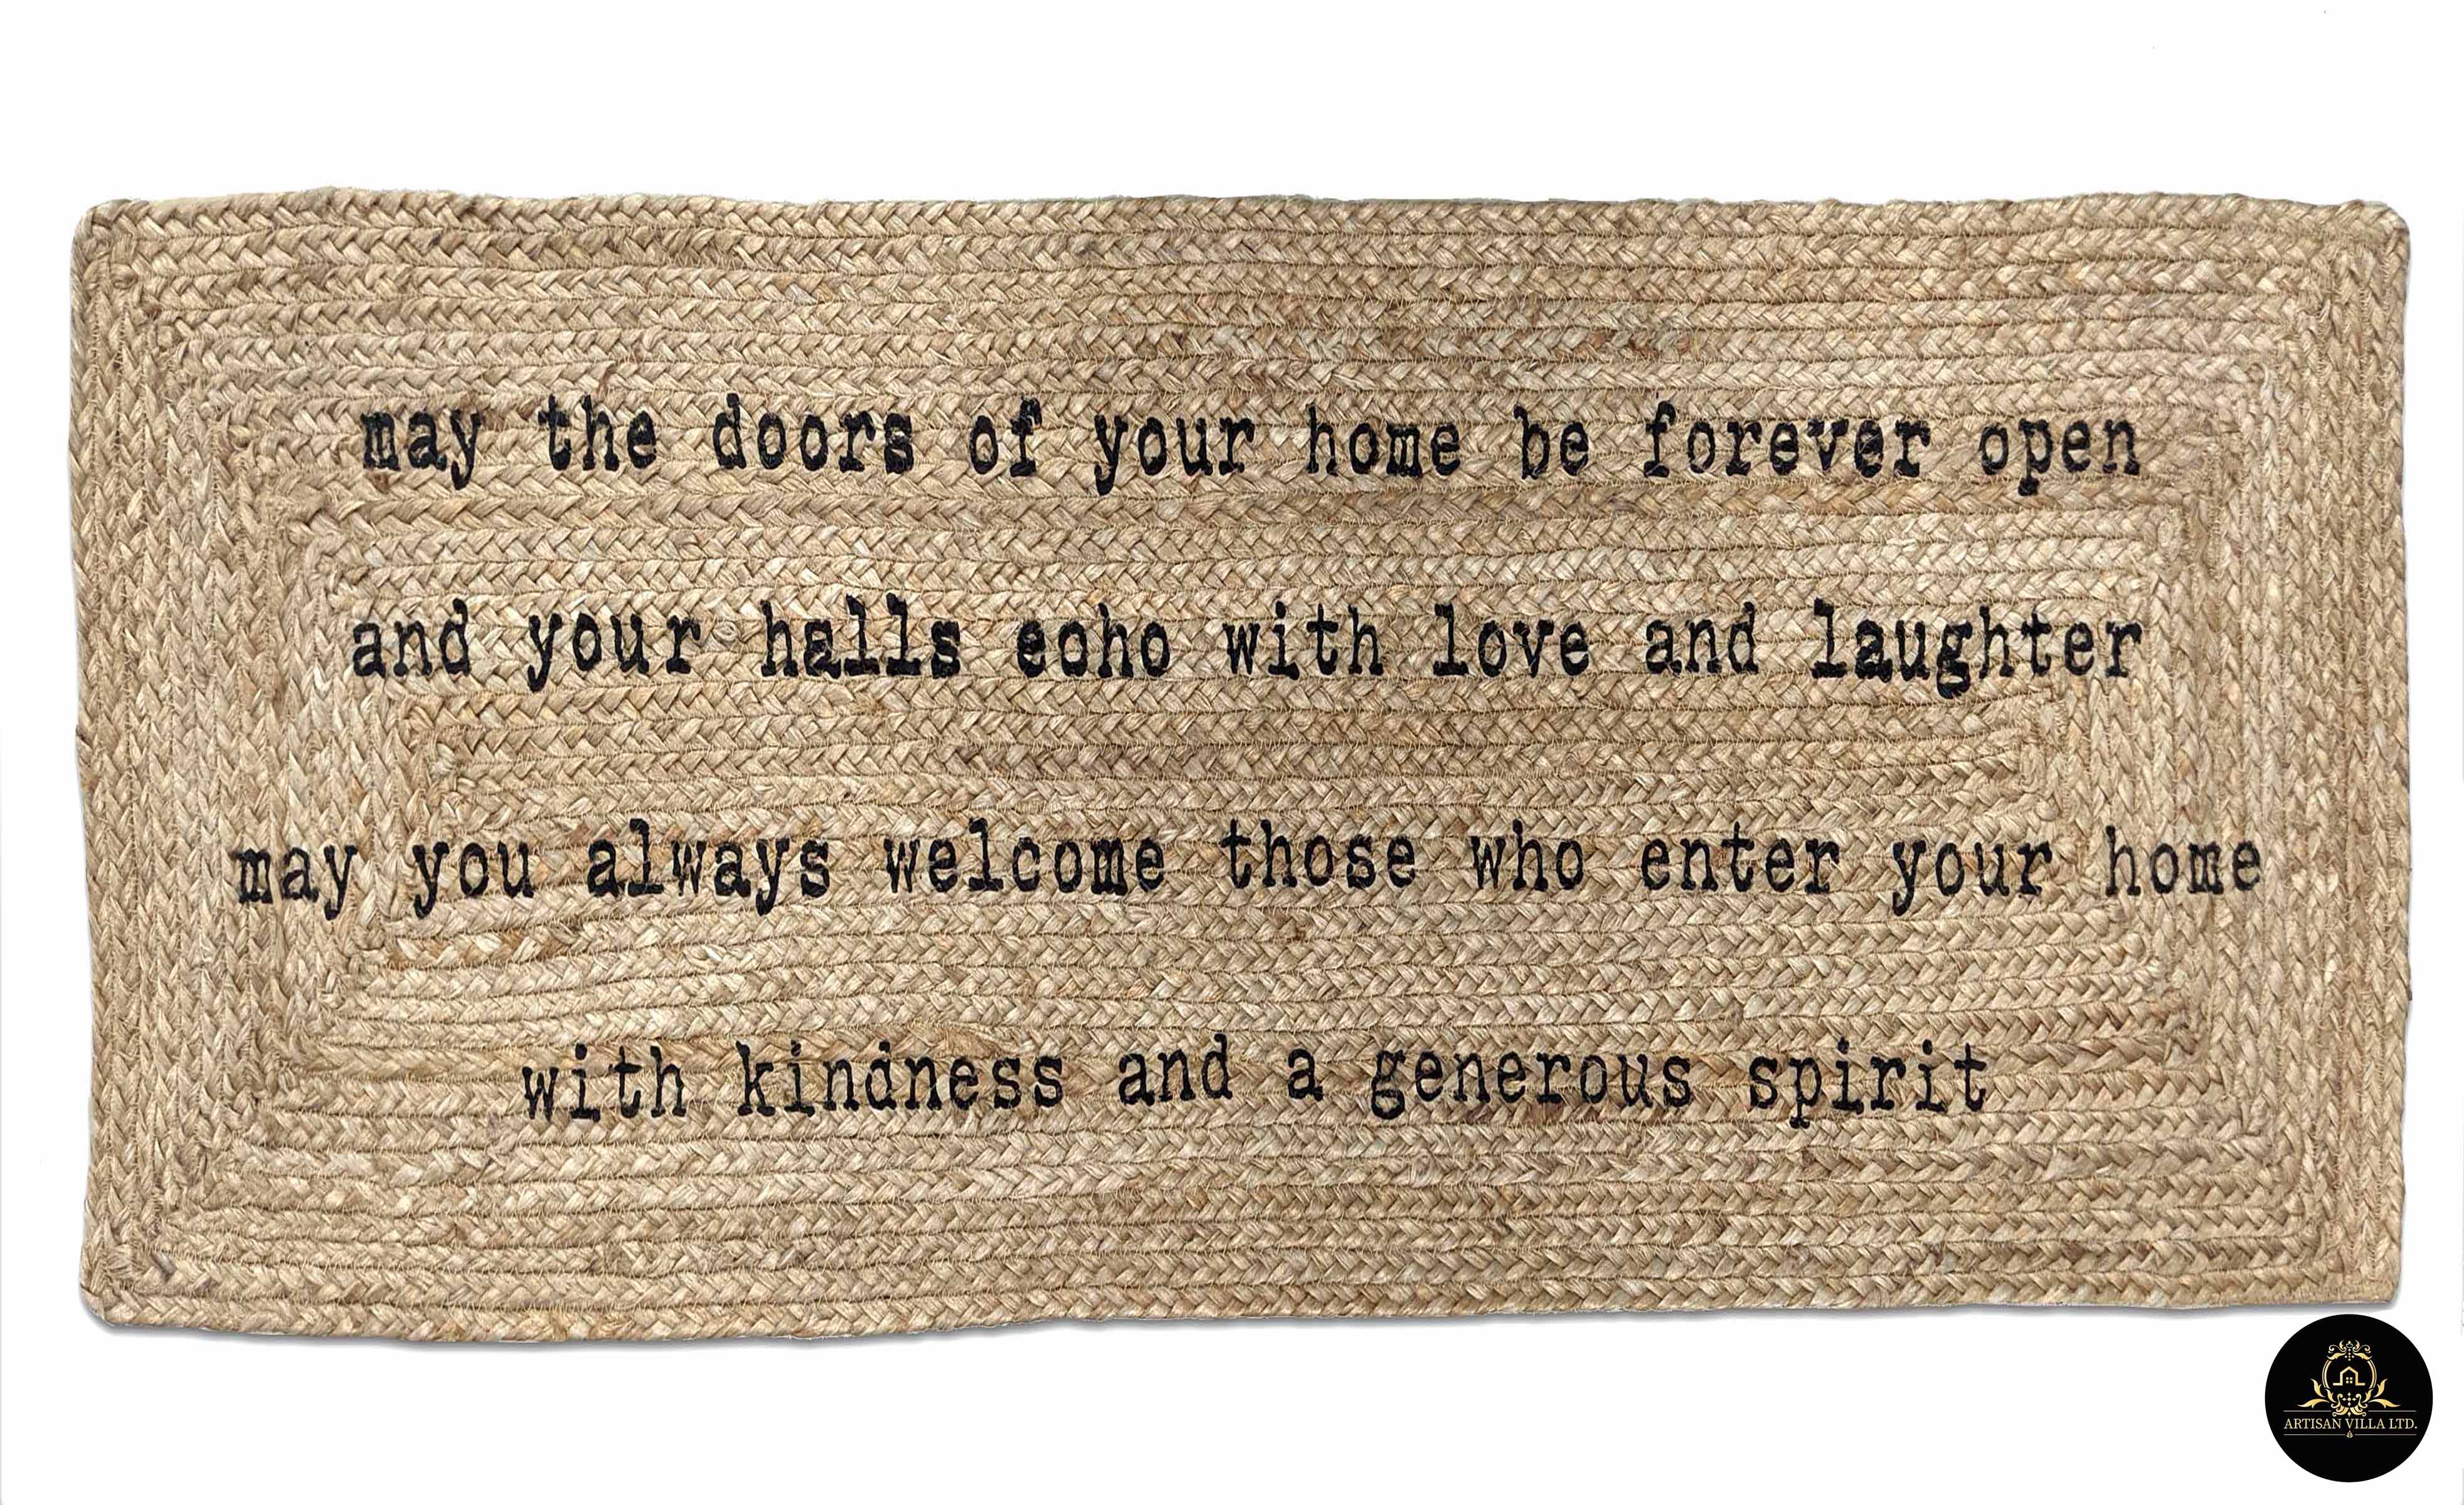 may the doors of your home be forever open
and your halls echo with love and laughter
may you always welcome those who enter your home
with kindness and a generous spirit
ARTISAN VILLA LTD.